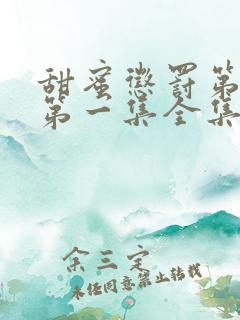 甜蜜懲罰第
第一集全集
余三定
未经同意禁止转载